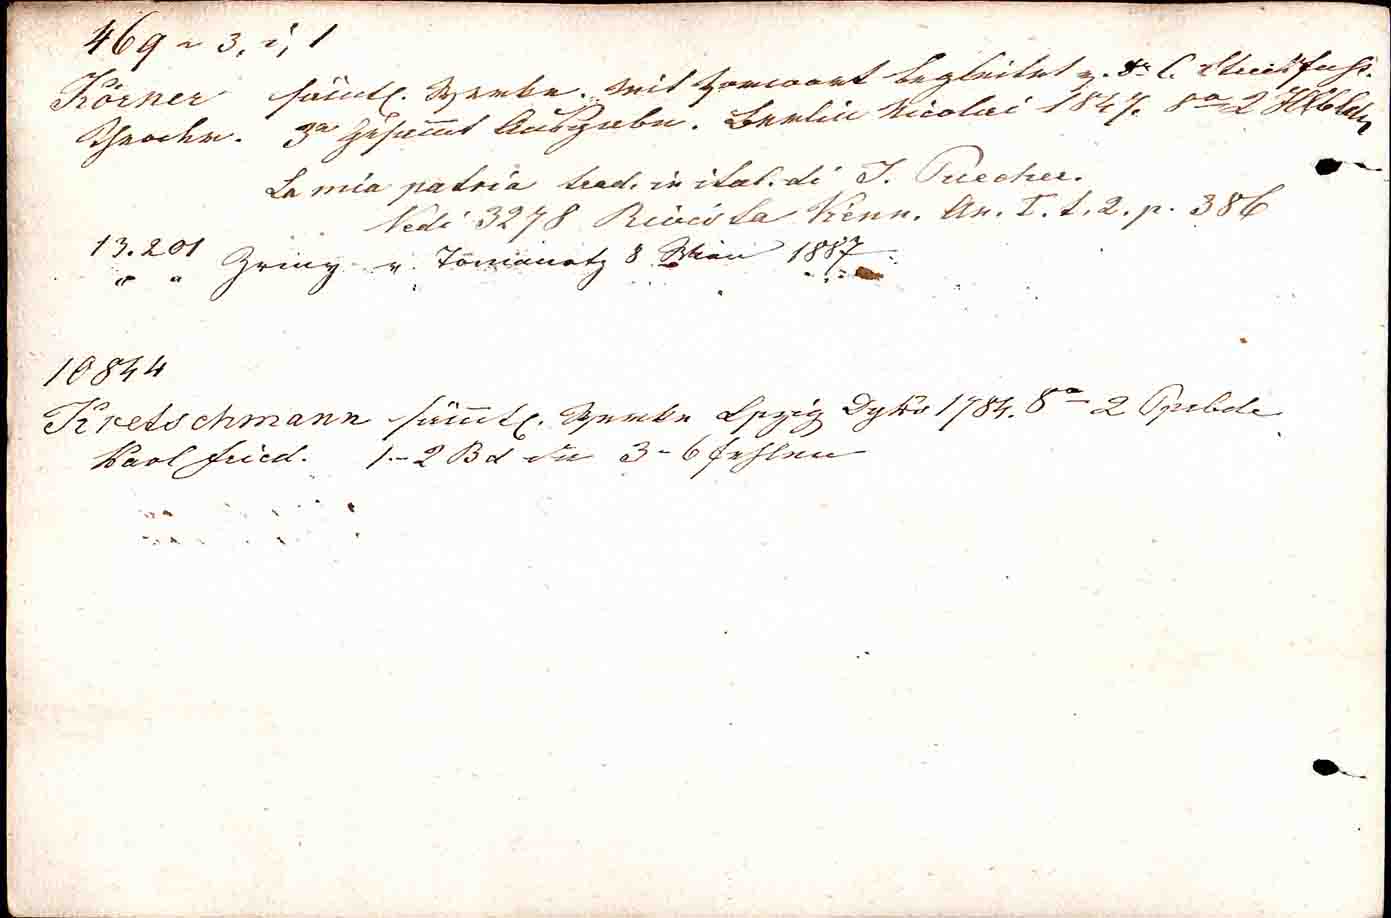 469 ~ 3, i, 1
Körner sämtl. Werke. mit Vorwort begleitet v. Dr C. Streckfuss.
Theodor. 3e Gesam̄t Ausgabe. Berlin Nicolai 1847. 8o 2 Hlbldr
La mia patria trad. in ital. di J. Puecher.
Vedi 3278 Rivista Vienn. An. I. t. 2. p. 386
13.201 Zriny v. Tomanetz 8 Wien 1887
10844
Kretschmann säm̄tl. Werke Lpzig Dyks 1784. 8o 2 Ppbde
Karl Fried. 1-2 Bd die 3-6 fehlen